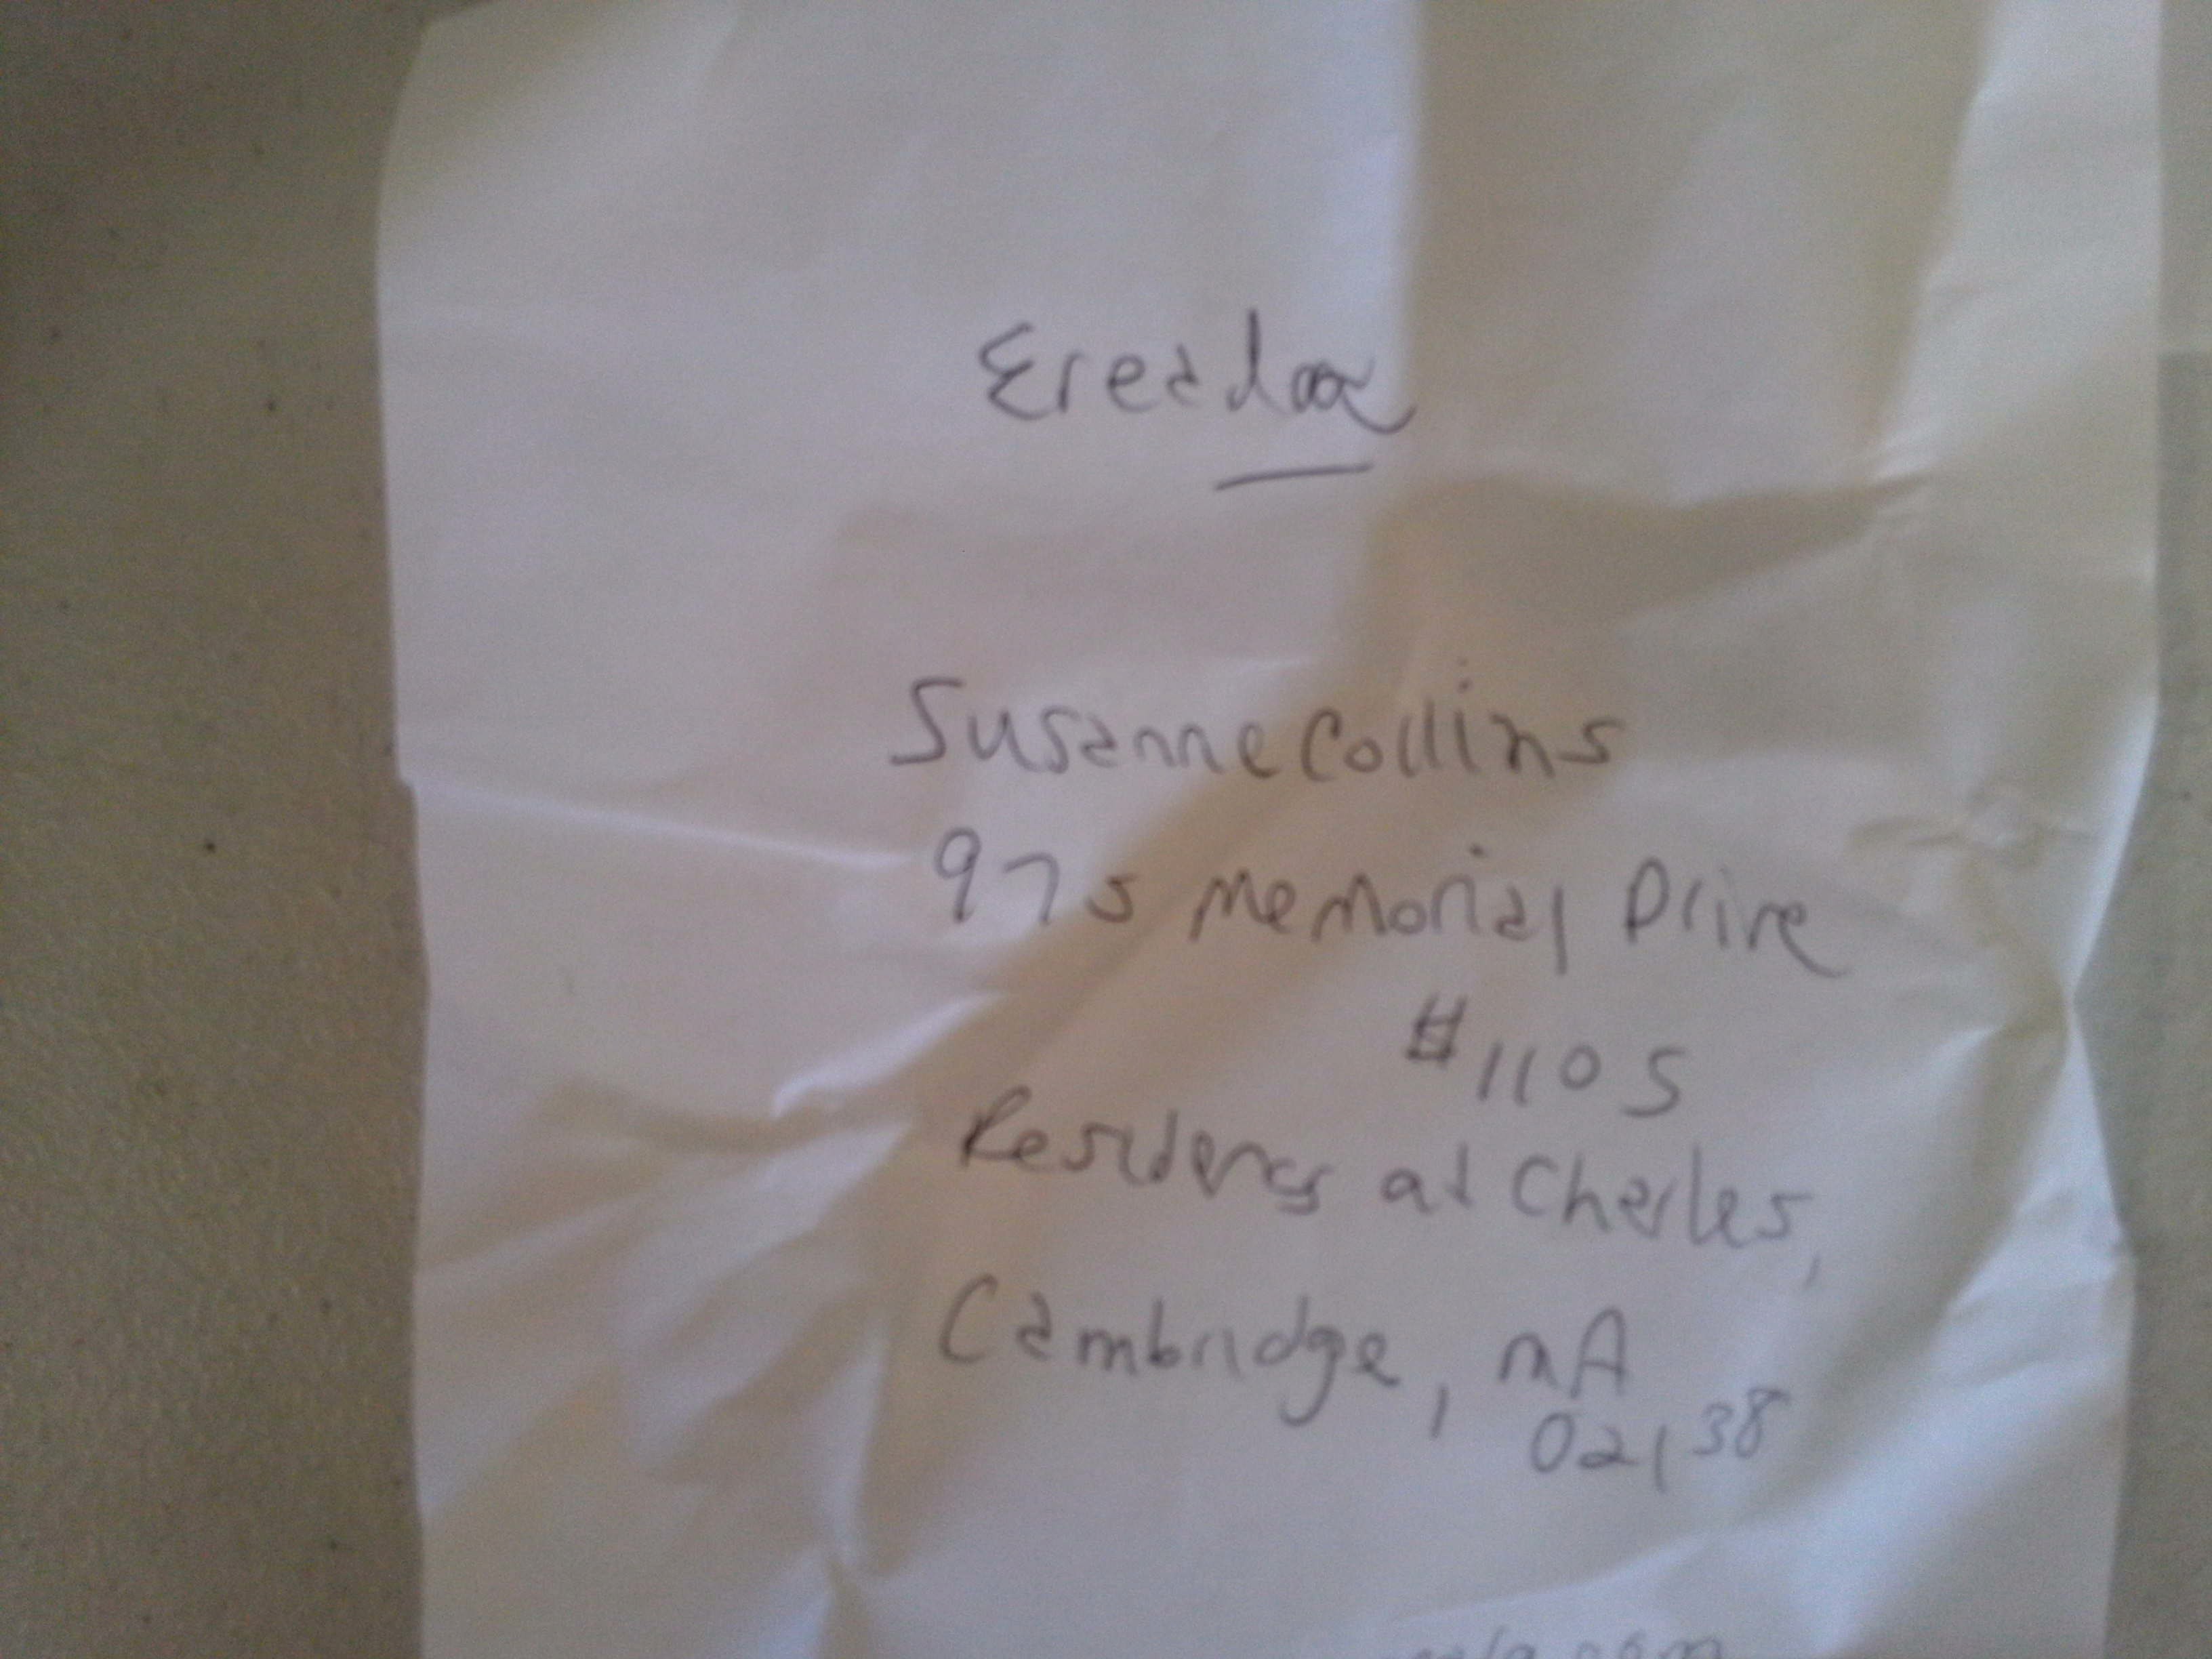 Susanne Collins
975 Memorial Drive
#1105
Residency at Charles,
Cambridge, MA
02138